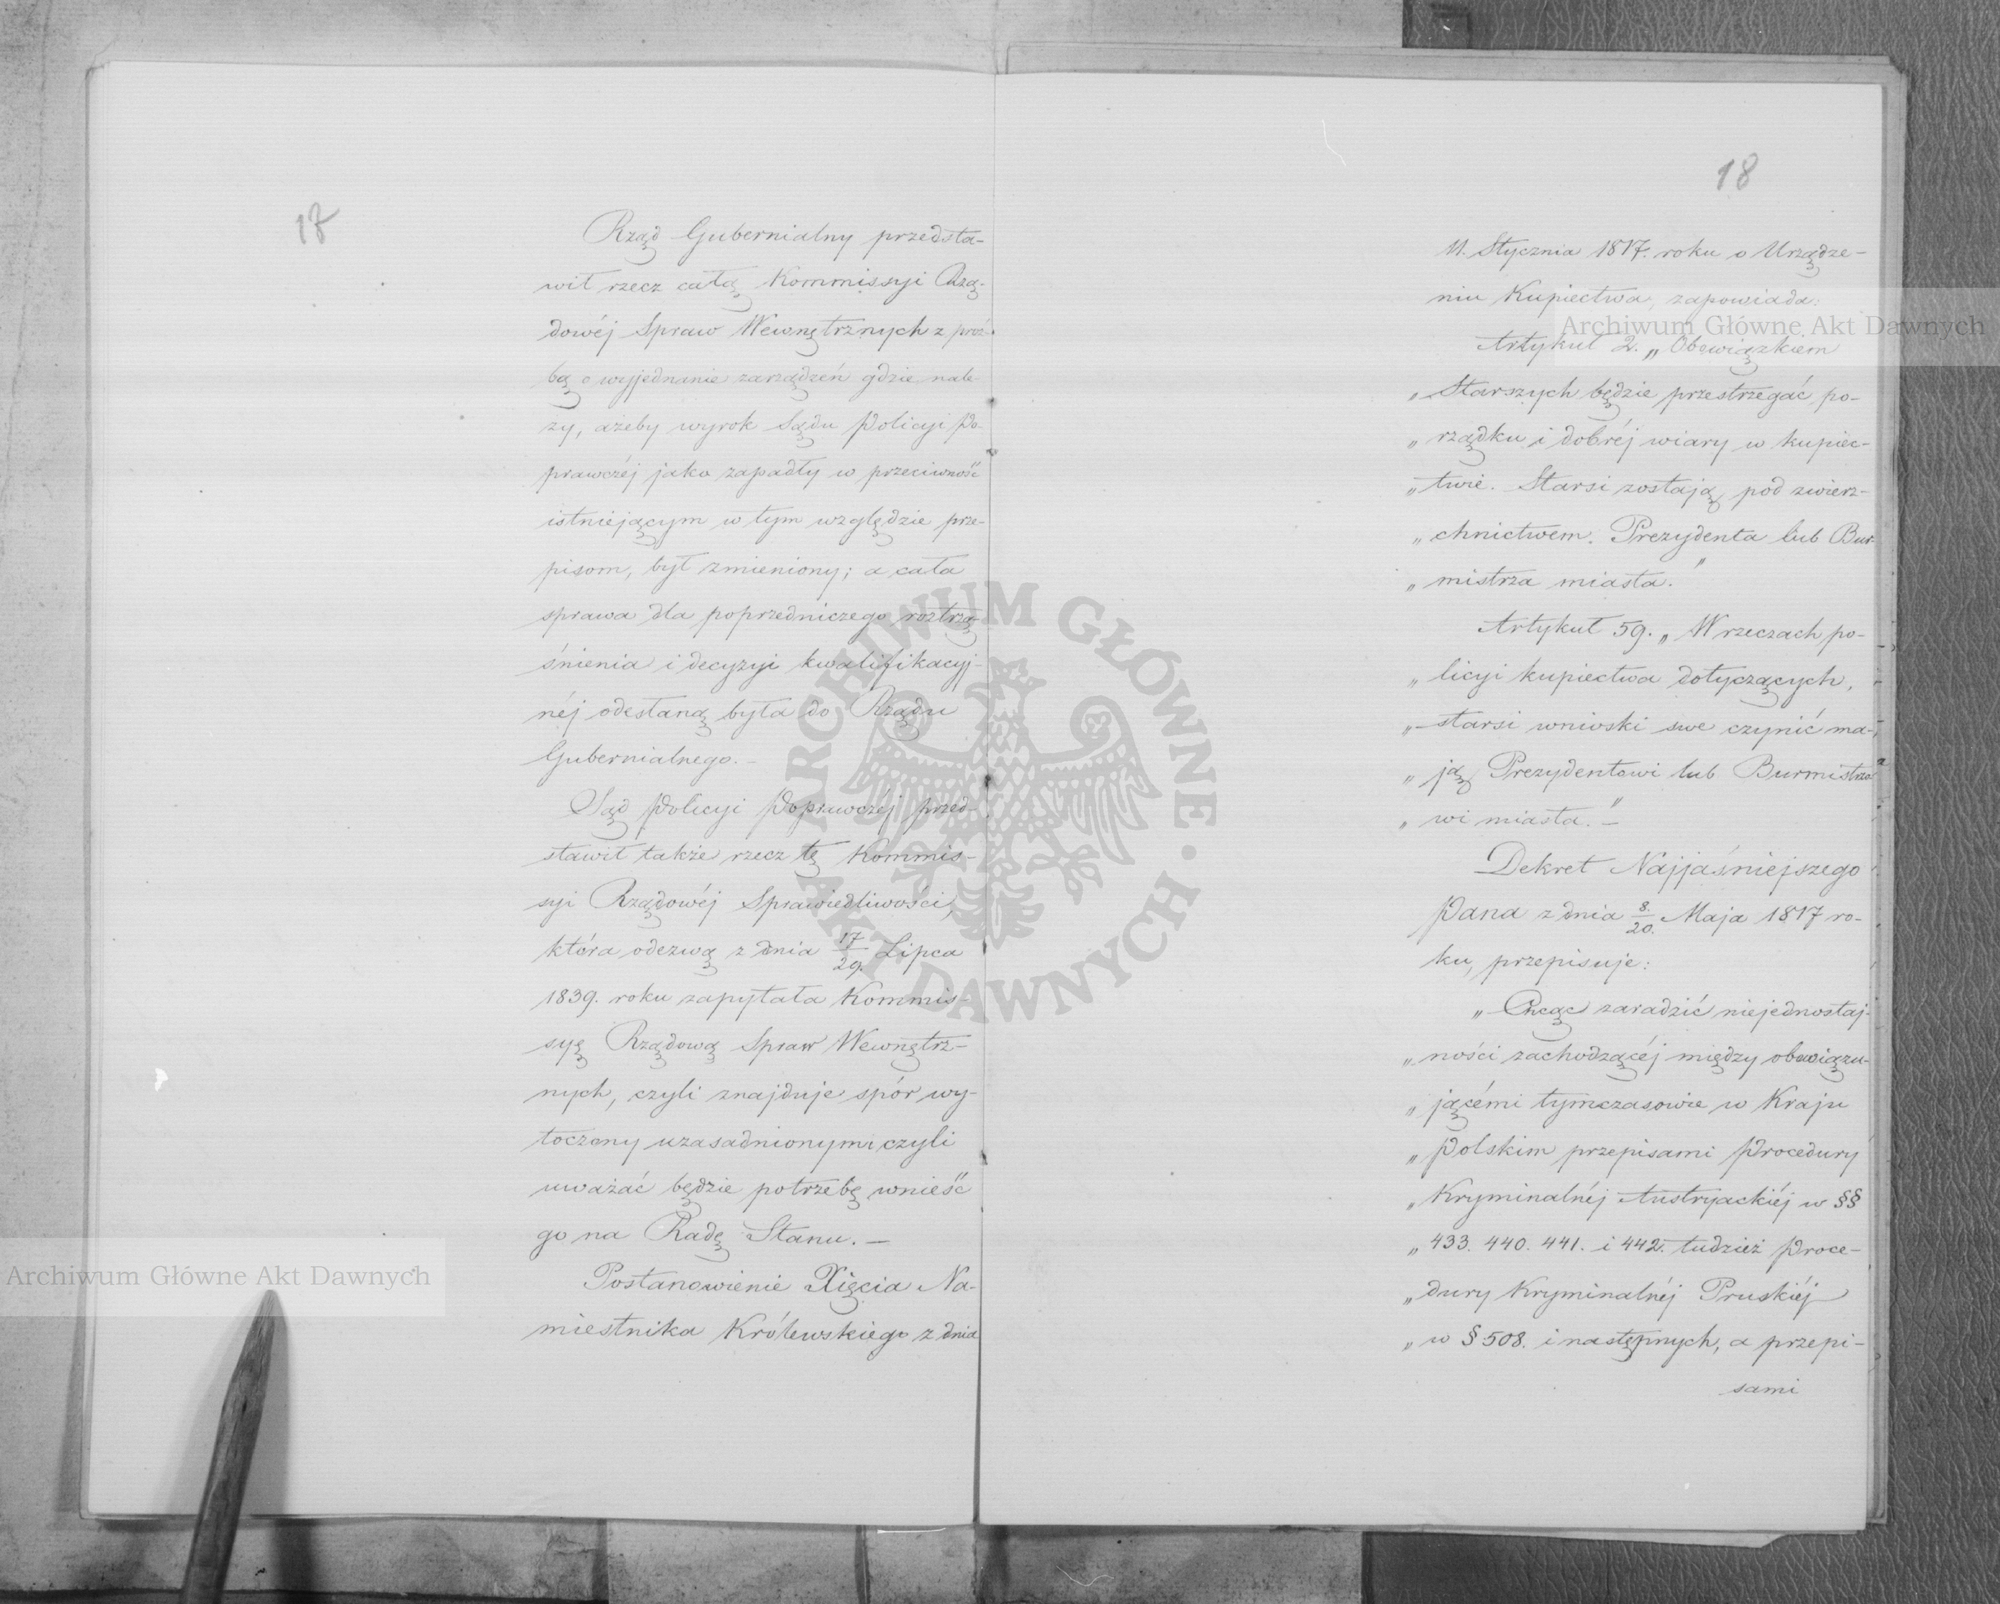 17
Rząd Gubernialny przedsta-
wił rzecz całą Kommissyi Rzą-
dowéj Spraw Wewnętrznych z proź-
bą o wyjednanie zarządzeń gdzie nale-
ży, ażeby wyrok Sądu Policyi Po-
prawczéj jako zapadły w przeciwność
istniejącym w tym względzie prze-
pisom, był zmieniony; a cała
sprawa dla poprzedniczego roztrzą-
śnienia i decyzyi kwalifikacyj-
néj odesłaną była do Rządu
Gubernialnego. –
Sąd Policyi Poprawczéj przed-
stawił także rzecz tę Kommis-
syi Rządowéj Sprawiedliwości,
która odezwą z dnia 17/29. Lipca
1839. roku zapytała Kommis-
syę Rządową Spraw Wewnętrz-
nych, czyli znajduje spór wy-
toczony uzasadnionym i czyli
uważać będzie potrzebę wnieść
go na Radę Stanu. –
Postanowienie Xięcia Na-
miestnika Królewskiego z dnia
18
11. Stycznia 1817. roku o Urządze-
niu Kupiectwa, zapowiada:
Artykuł 2. „Obowiązkiem
„Starszych będzie przestrzegać po-
„rządku i dobréj wiary w kupiec-
„twie. Starsi zostają pod zwierz-
„chnictwem Prezydenta lub Bur-
„mistrza miasta."
Artykuł 59. „W rzeczach po-
„licyi kupiectwa dotyczących,
„starsi wnioski swe czynić ma-
„ją Prezydentowi lub Burmistrzo
„wi miasta." –
Dekret Najjaśniejszego
Pana z dnia 8./20. Maja 1817 ro-
ku, przepisuje:
„Chcąc zaradzić niejednostaj-
„ności zachodzącéj między obowiązu-
„jącémi tymczasowie w Kraju
„Polskim przepisami Procedury
„Kryminalnéj Austryackiéj w §§
„433. 440. 441. i 442. tudzież Proce-
„dury Kryminalnéj Pruskiéj
„w § 508. i następnych, a przepi-
sami
Archiwum Główne Akt Dawnych
Archiwum Główne Akt Dawnych
ARCHIWUM GŁÓWNE · AKT DAWNYCH ·